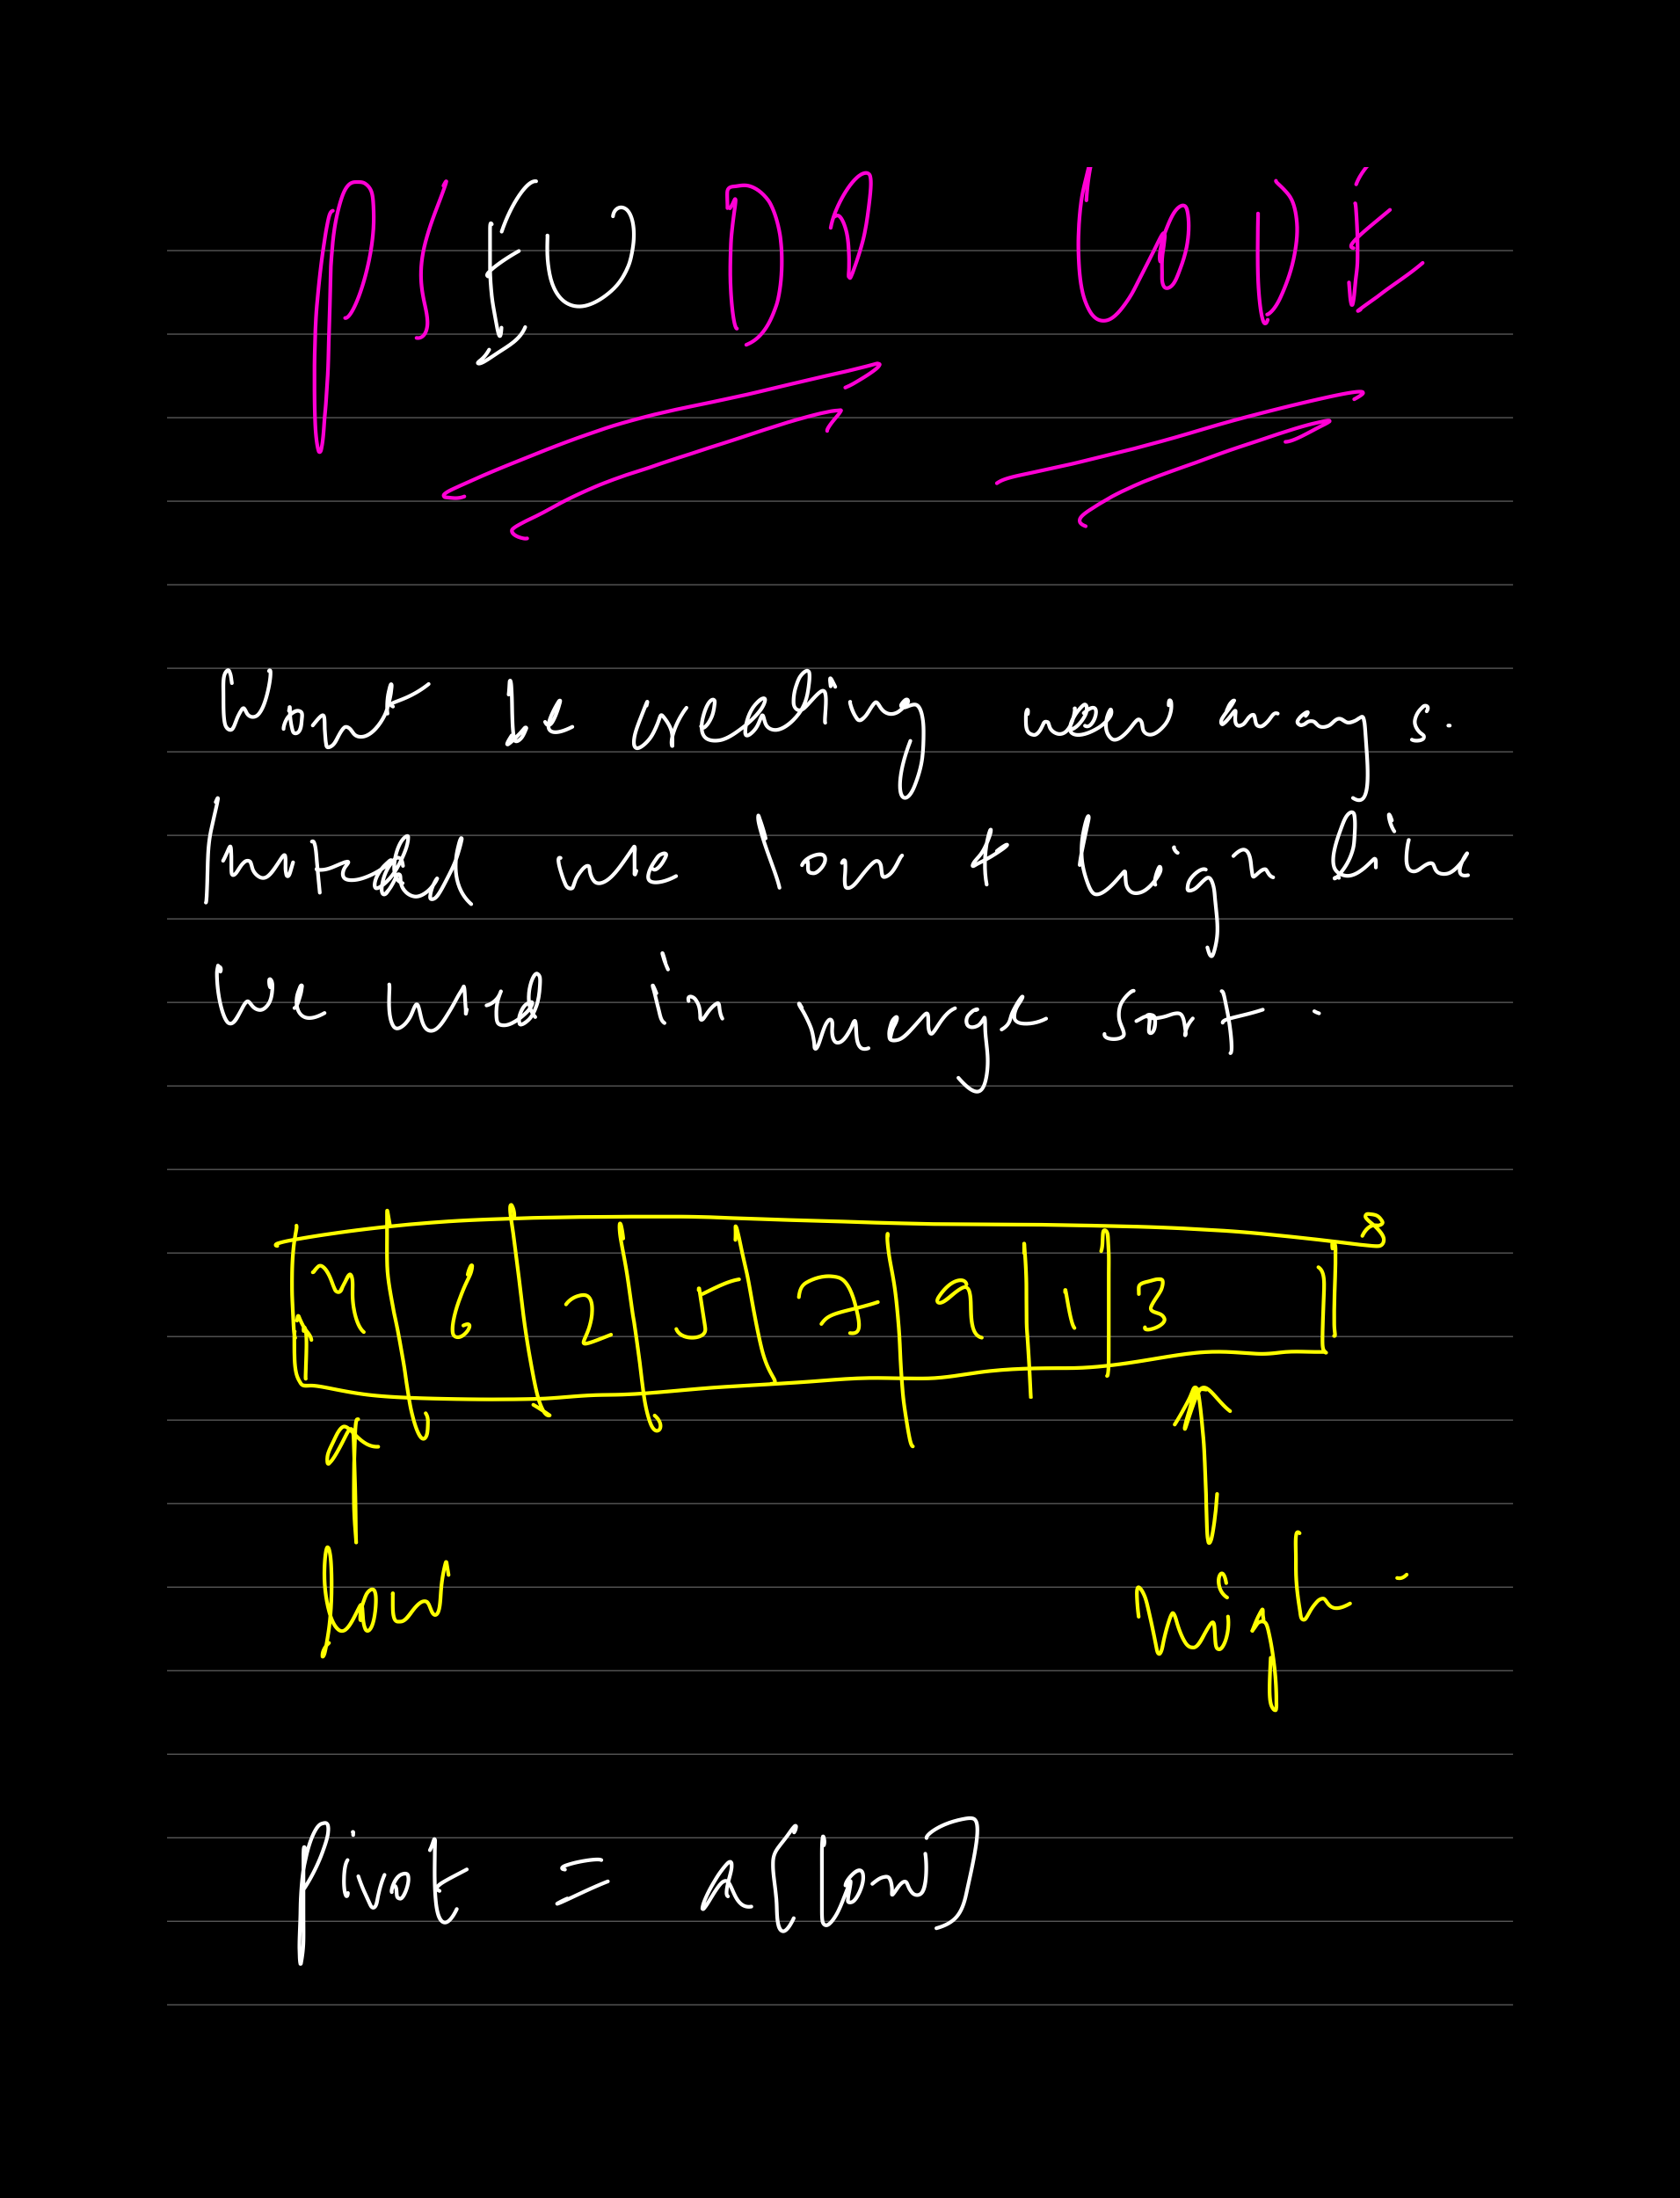 PSEUDO CODE
Wont be creating new arrays.
Instead we low & high like
we used in merge sort.
4 6 2 5 7 9 1 3
low
high
pivot = a[low]